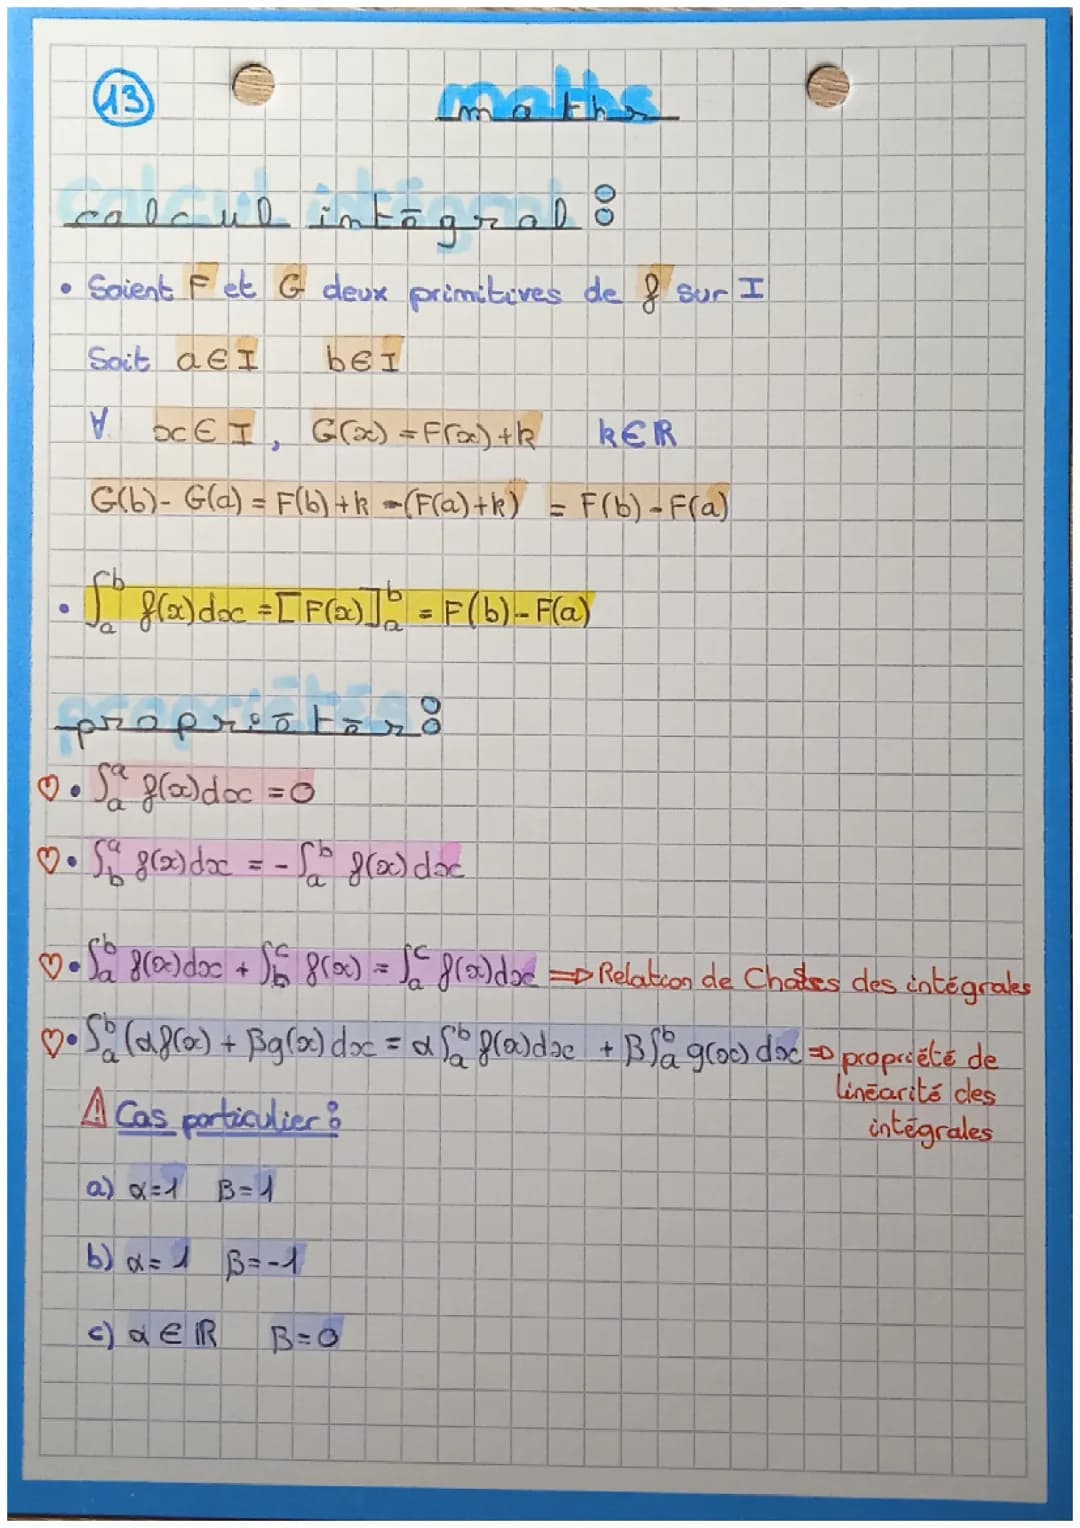 13
maths
calcul intégral :
• Soient F et G deux primitives de f sur I
Soit a ∈ I b ∈ I
∀ x ∈ I, G(x) = F(x) + k k ∈ ℝ
G(b) - G(a) = F(b) + k - (F(a) + k) = F(b) - F(a)
• ∫_a^b f(x)dx = [F(x)]_a^b = F(b) - F(a)
propriétés :
♡ • ∫_a^a f(x)dx = 0
♡ • ∫_b^a f(x)dx = - ∫_a^b f(x)dx
♡ • ∫_a^b f(x)dx + ∫_b^c f(x) = ∫_a^c f(x)dx ⇒ Relation de Chasles des intégrales
♡ • ∫_a^b (αf(x) + βg(x) dx = α ∫_a^b f(x)dx + β ∫_a^b g(x) dx ⇒ propriété de
linéarité des
intégrales
⚠ Cas particulier :
a) α = 1 β = 1
b) α = 1 β = -1
c) α ∈ ℝ β = 0